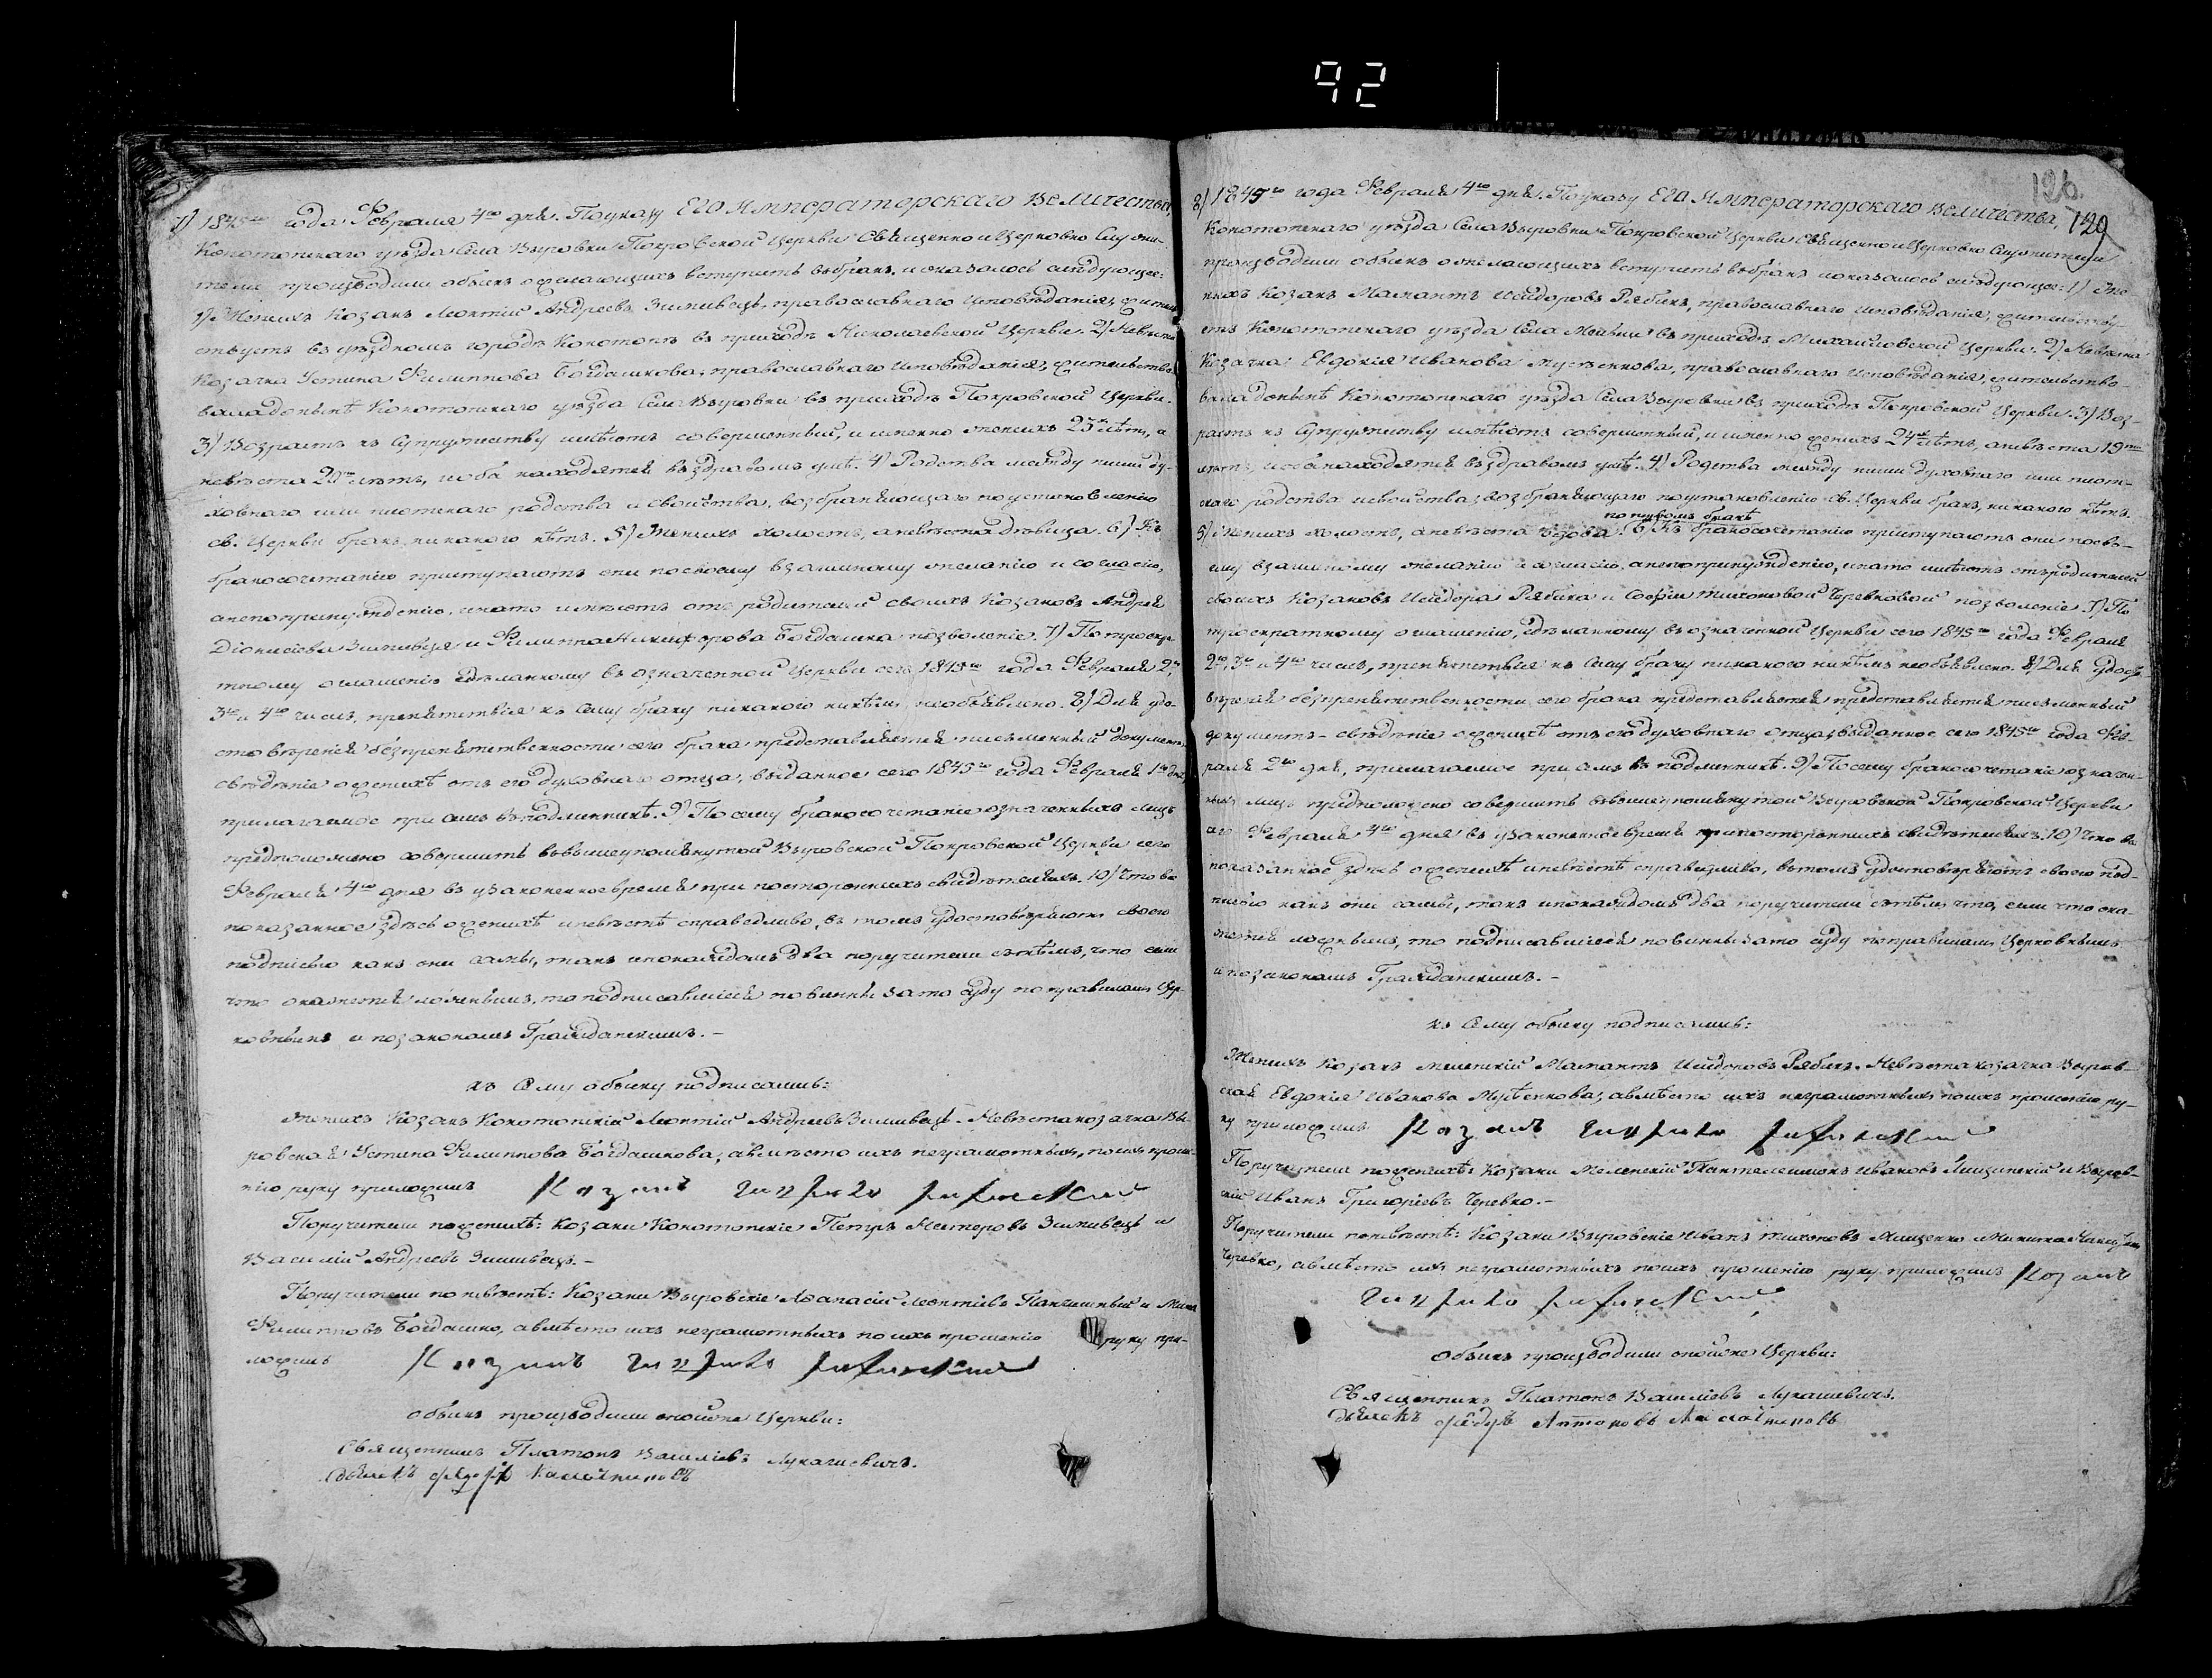 92
7) 1845го года Февраля 4го дня. По указу Его Императорскаго Величества,
Конотопскаго уѣзда Села Выровки Покровской Церкви Священно и Церковно Служи-
тели производили обыскъ о желающихъ вступить въ бракъ, и оказалось слѣдующее:
1) Женихъ Козакъ Леонтій Андреевъ Зимивецъ, православнаго исповѣданія, жительс-
твуетъ въ уѣздномъ городѣ Конотопѣ въ приходѣ Николаевской Церкви. 2) Невѣста
Козачка Устина Филиппова Богдашкова, православнаго исповѣданія, жительство-
вала донынѣ Конотопскаго уѣзда Села Выровки въ приходѣ Покровской Церкви.
3) Возрастъ къ супружеству имѣютъ совершенный, и именно женихъ 23 лѣтъ, а
невѣста 20 лѣтъ, и оба находятся въ здравомъ умѣ. 4) Родства между ними ду-
ховнаго или плотскаго родства и свойства, возбраняющаго по установленію
св. Церкви бракъ, никакого нѣтъ. 5) Женихъ холостъ, а невѣста дѣвица. 6) Къ
бракосочетанію приступаютъ они по своему взаимному желанію и согласію,
а не по принужденію, и на то имѣютъ отъ родителей своихъ Козаковъ Андрея
Діонисіева Зимивца и Филиппа Никифорова Богдашка позволеніе. 7) По троекра-
тному оглашенію сдѣланному въ означенной Церкви сего 1845го года Февраля 2го,
3го и 4го числъ, препятствія къ сему браку никакого никѣмъ не объявлено. 8) Для удо-
стовѣренія безпрепятственности сего брака представляется письменный документъ
свѣдѣніе о женихѣ отъ его духовнаго отца, выданное сего 1845го года Февраля 1го дня
прилагаемое при семъ въ подлинникѣ. 9) По сему бракосочетаніе означенныхъ лицъ
предположено совершить въ вышеупомянутой Выровской Покровской Церкви сего
Февраля 4го дня въ узаконенное время при постороннихъ свидѣтеляхъ. 10) Что все
показанное здѣсь о женихѣ и невѣстѣ справедливо, въ томъ удостовѣряютъ своею
подписью какъ они сами, такъ и по каждомъ два поручители съ тѣмъ, что если
что окажется ложнымъ, то подписавшіеся повинны за то суду по правиламъ Цер-
ковнымъ и по законамъ Гражданскимъ. -
къ сему обыску подписались:
женихъ Козакъ Конотопскій Леонтій Андреевъ Зимивецъ. Невѣста козачка Вы-
ровская Устина Филиппова Богдашкова, а вмѣсто ихъ неграмотныхъ, по ихъ проше-
нію руку приложилъ Козакъ
Поручители по женихѣ: Козаки Конотопскіе Петръ Нестеровъ Зимивецъ и
Василій Андреевъ Зимивецъ. -
Поручители по невѣстѣ: Козаки Выровскіе Афанасій Леонтіевъ и
Филипповъ Богдашко, а вмѣсто ихъ неграмотныхъ по ихъ прошенію руку при-
ложилъ Козакъ
Обыскъ производили оной же Церкви:
Священникъ Платонъ Василіевъ Лукашевичъ.
Дьячекъ Федоръ
126
129
8) 1845го года Февраля 4го дня. По указу Его Императорскаго Величества,
Конотопскаго уѣзда Села Выровки Покровской Церкви Священно и Церковно Служители
производили обыскъ о желающихъ вступить въ бракъ и оказалось слѣдующее: 1) Же-
нихъ Козакъ Мамантъ Исидоровъ Рябыхъ, православнаго исповѣданія, жительству-
етъ Конотопскаго уѣзда Села въ приходѣ Михайловской Церкви. 2) Невѣста
Козачка Евдокія Иванова Мусѣенкова, православнаго исповѣданія, жительство-
вала донынѣ Конотопскаго уѣзда Села Выровки въ приходѣ Покровской Церкви. 3) Воз-
растъ къ супружеству имѣютъ совершенный, и именно женихъ 24 лѣтъ, а невѣста 19ти
лѣтъ, и оба находятся въ здравомъ умѣ. 4) Родства между ними духовнаго или плот-
скаго родства и свойства, возбраняющаго по установленію св. Церкви бракъ, никакого нѣтъ.
по первомъ бракѣ
5) Женихъ холостъ, а невѣста вдова. 6) Къ бракосочетанію приступаютъ они по сво-
ему взаимному желанію и согласію, а не по принужденію, и на то имѣютъ отъ родителей
своихъ Козаковъ Исидора Рябыха и Софіи Тихоновой Черевковой позволеніе. 7) По
троекратному оглашенію, сдѣланному въ означенной Церкви сего 1845го года Февраля
2го, 3го и 4го числъ, препятствія къ сему браку никакого никѣмъ не объявлено. 8) Для удосто-
вѣренія безпрепятственности сего брака представляется представляется письменный
документъ - свѣдѣніе о женихѣ отъ его духовнаго отца, выданное сего 1845го года Фев-
раля 2го дня, прилагаемое при семъ въ подлинникѣ. 9) По сему бракосочетаніе означен-
ныхъ лицъ предположено совершить въ вышеупомянутой Выровской Покровской Церкви
сего Февраля 4го дня въ узаконенное время при постороннихъ свидѣтеляхъ. 10) Что все
показанное здѣсь о женихѣ и невѣстѣ справедливо, въ томъ удостовѣряютъ своею под-
писью какъ они сами, такъ и по каждомъ два поручители съ тѣмъ, что, если что ока-
жется ложнымъ, то подписавшіеся повинны за то суду по правиламъ Церковнымъ
и по законамъ Гражданскимъ. -
къ сему обыску подписались:
Женихъ Козакъ Мамантъ Исидоровъ Рябыхъ. Невѣста козачка Выров-
ская Евдокія Иванова Мусѣенкова, а вмѣсто ихъ неграмотныхъ по ихъ прошенію ру-
ку приложилъ Козакъ
Поручители по женихѣ: Козаки Пантелеимонъ Ивановъ и Выров-
скій Иванъ Григоріевъ Черевко. -
Поручители по невѣстѣ: Козаки Выровскіе Иванъ Тихоновъ Мищенко и Никита
Черевко, а вмѣсто ихъ неграмотныхъ по ихъ прошенію руку приложилъ Козакъ
Обыскъ производили оной же Церкви:
Священникъ Платонъ Василіевъ Лукашевичъ.
Дьячекъ Федоръ Антоновъ